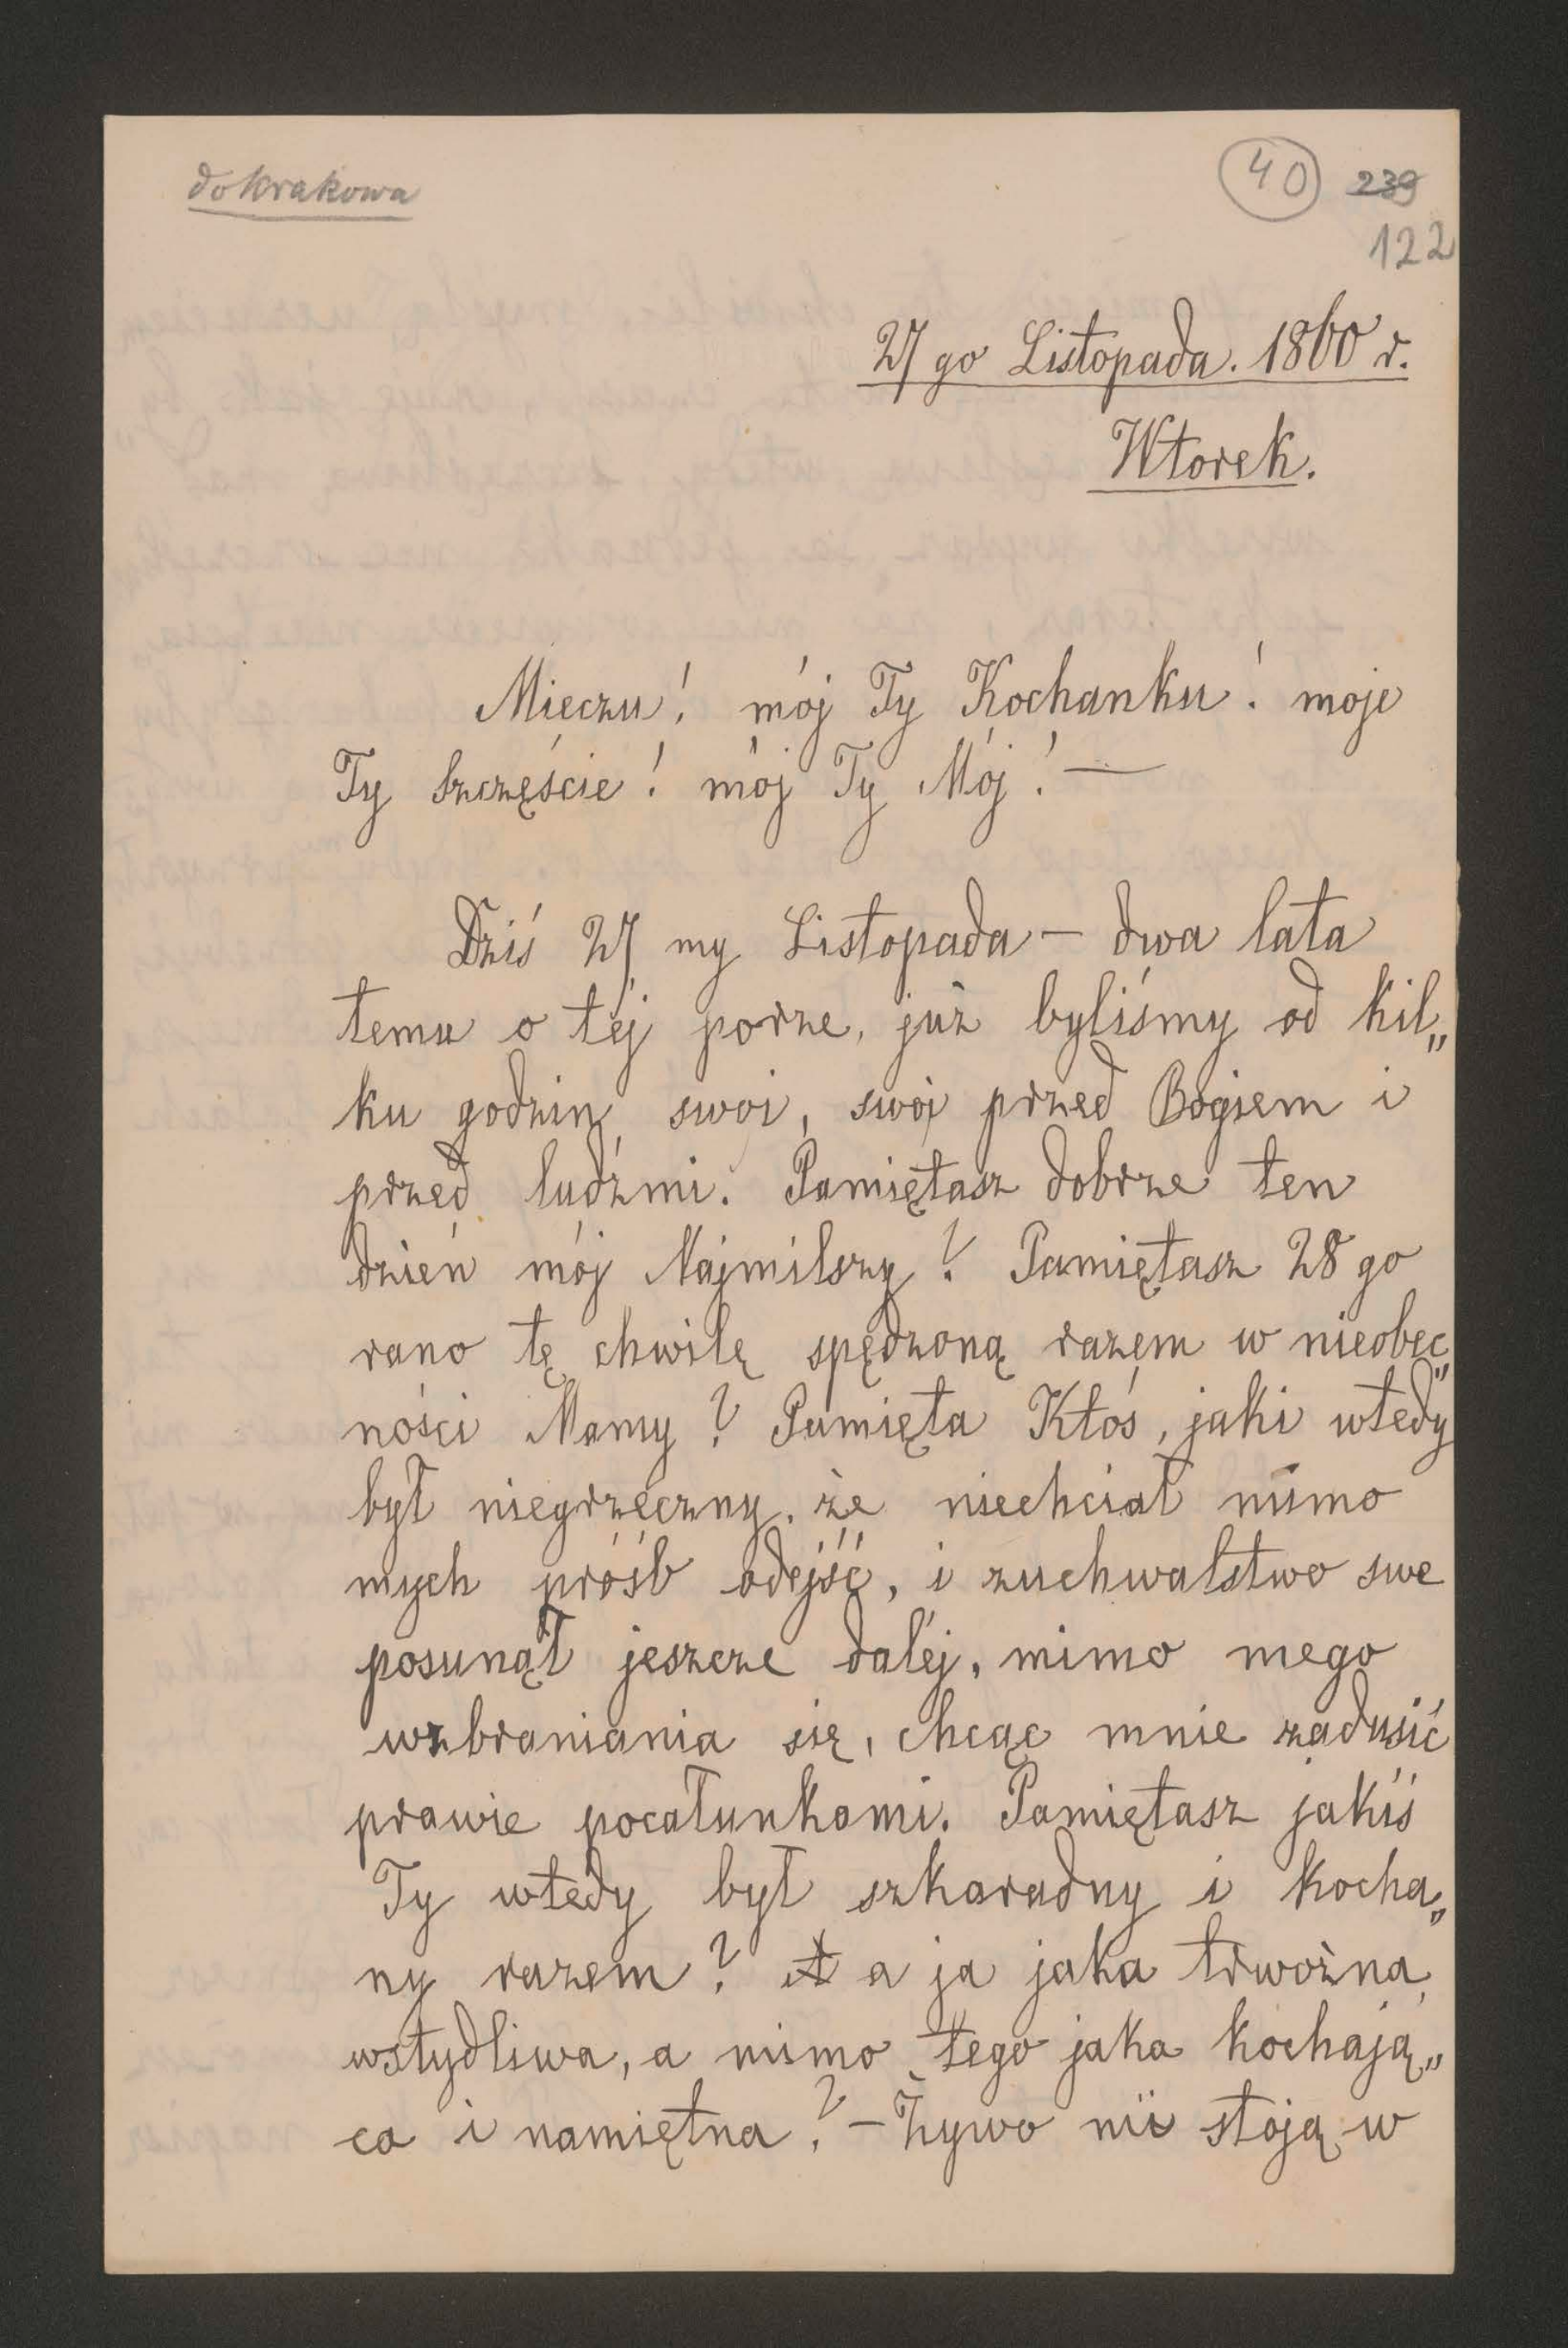 do Krakowa
40 239
122
27 go Listopada. 1860 r.
Wtorek.
Mieczu! mój Ty Kochanku! moje
Ty Szczęście! mój Ty Mój! —
Dziś 27 my Listopada — dwa lata
temu o téj porze, już byliśmy od kil„
ku godzin swoi, swoi przed Bogiem i
przed ludźmi. Pamiętasz dobrze ten
dzień mój Najmilszy? Pamiętasz 28 go
rano tę chwilę spędzoną razem w nieobec„
ności Mamy? Pamięta Ktoś, jaki wtedy
był niegrzeczny, że niechciał mimo
mych próśb odejść, i zuchwalstwo swe
posunął jeszcze daléj, mimo mego
wzbraniania się, chcąc mnie zadusić
prawie pocałunkami. Pamiętasz jakiś
Ty wtedy był szkaradny i kocha„
ny razem? A a ja jaka trwożna,
wstydliwa, a mimo tego jaka kochają„
ca i namiętna? — Żywo mi stoją w